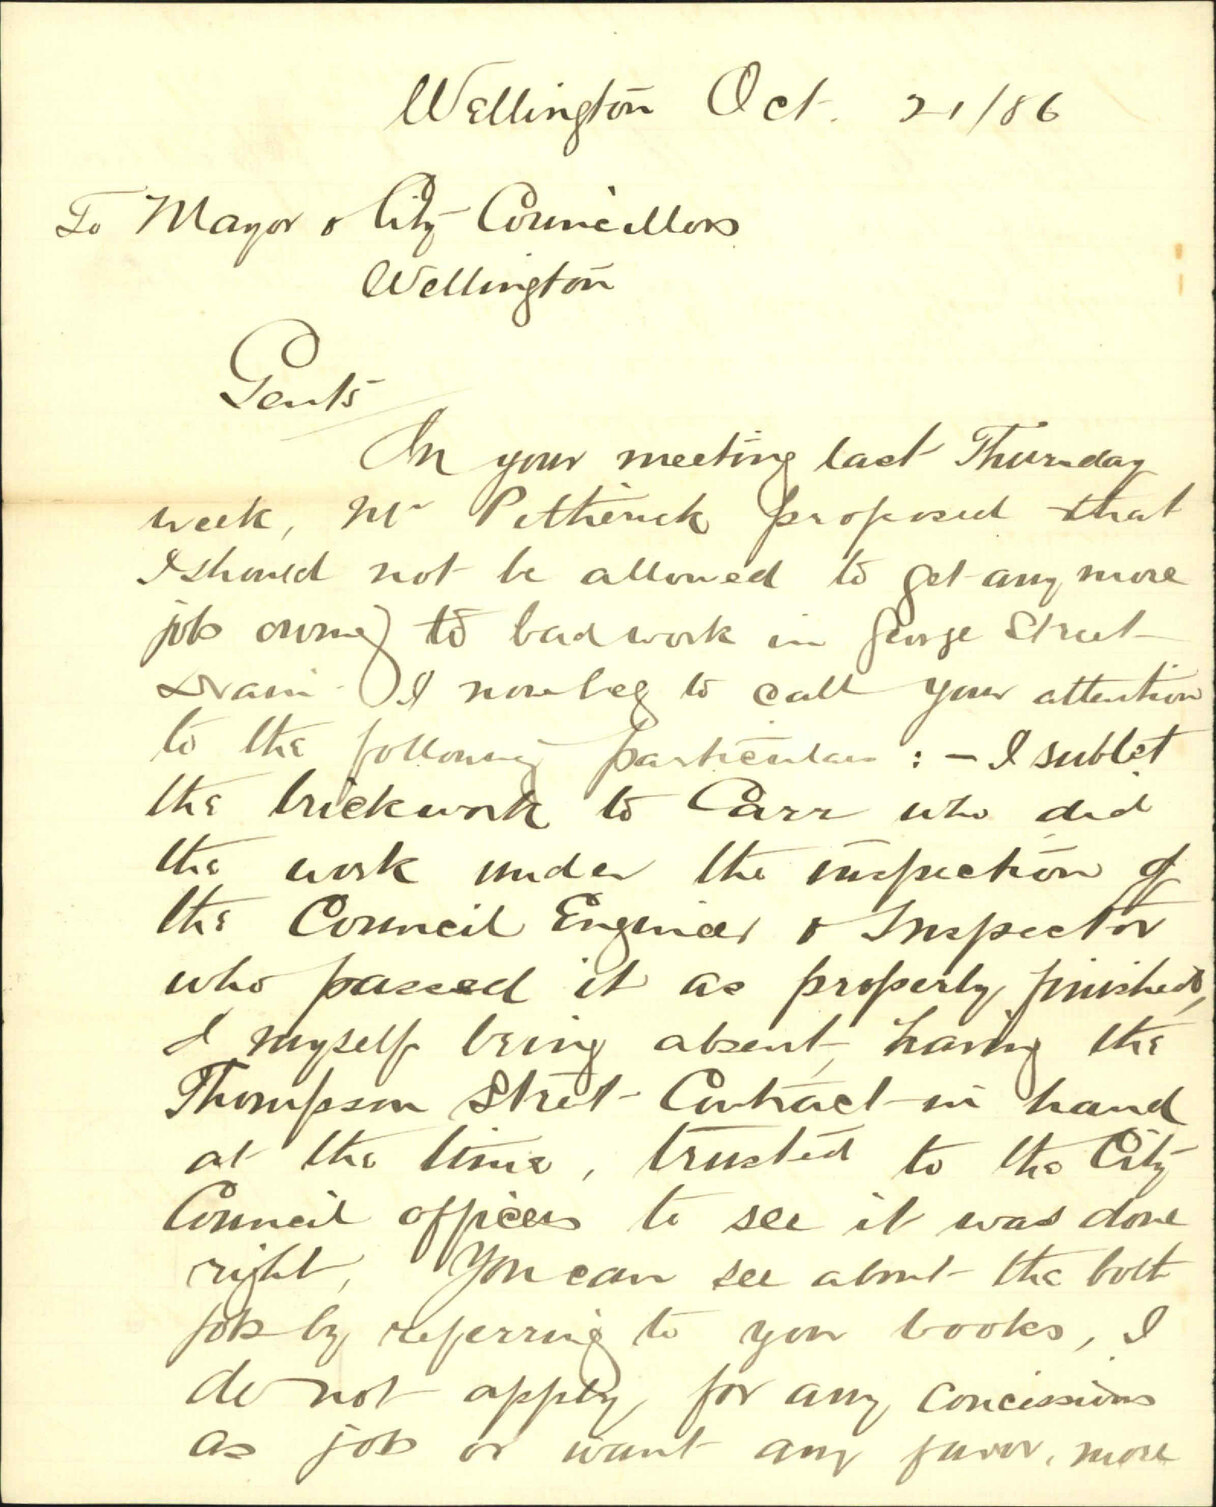 Wellington Oct. 21/86
To Mayor & City Councillors
Wellington
Gents
In your meeting last Thursday
week, Mr Petherick proposed that
I should not be allowed to get any more
jobs owing to bad work in George Street
Drain. I now beg to call your attention
to the following particulars : - I sublet
the brickwork to Carr who did
the work under the inspection of
the Council Engineer & Inspector
who passed it as properly finished,
I myself being absent, having the
Thompson Street Contract in hand
at the time, trusted to the City
Council officers to see it was done
right, You can see about the both
jobs by referring to your books, I
do not apply for any concissions
as jobs or want any favor, more